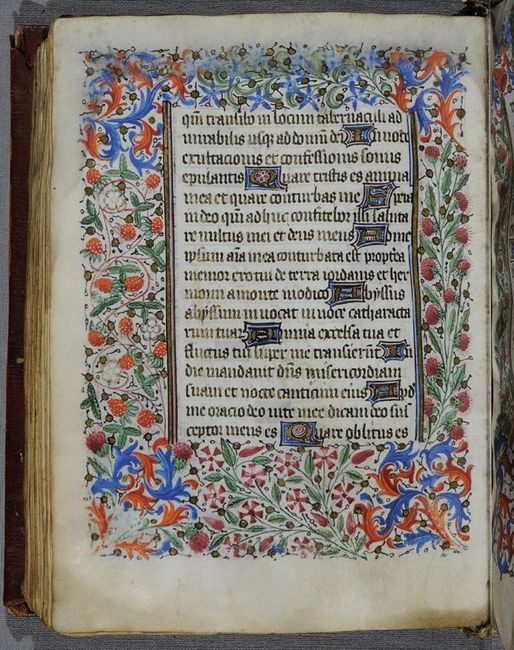 qm̄ transibo in locum tabernaculi ad
mirabilis usqꝫ ad domū dei In uoce
exultacionis et confessionis sonus
epulantis Quare tristis es anima
mea et quare conturbas me Spera
in deo qm̄ adhuc confitebor illi saluta
re uultus mei et deus meus Ad me
ipsum aīa mea conturbata est propterea
memor ero tui de terra iordanis et her
monij a monte modico Abyssus
abyssum inuocat in uoce catharacta
rum tuarū Omnia excelsa tua et
fluctus tui super me transierūt In
die mandauit dn̄s misericordiam
suam et nocte canticum eius Apd
me oracio deo uite mee dicam deo sus
ceptor meus es Quare oblitus es